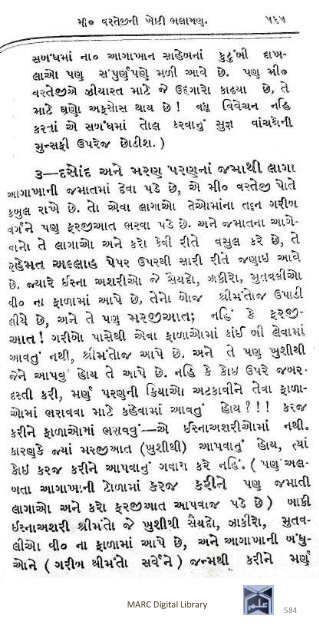 મી૦ વરતેજીની ખોટી ભલામણુ. ૫૬૫
સબંધમાં ના૦ આગાખાન સાહેબનાં કુટુંબી દાખ-
લાએા પણુ સંપુર્ણુપણે મળી આવે છે. પણુ મી૦
વરતેજીએ ઝીયારત માટે જે ઉદ્દગારો કાઢયા છે, તે
માટે ઘણેા અફસોસ થાય છે ! વધુ વિવેચન નહિ
કરતાં એ સબંધમાં તોલ કરવાનું સુજ્ઞ વાંચકોની
મુન્સફી ઉપરેજ છેાડીશ. )
૩—દસોંદ અને મરણુ પરણુનાં જમાથી લાગા
આગાખાની જમાતમાં દેવા પડે છે, એ મી૦ વરતેજી પોતે
કબુલ રાખે છે. તો એવા લાગાએા તેઓમાંના તદ્દન ગરીબ
વર્ગને પણુ ફરજીઆત ભરવા પડે છે. અને જમાતના આગે-
વાનો તે લાગાએા અને કરો કેવી રીતે વસુલ કરે છે, તે
રહેમત અલ્લાહ પેપર ઉપરથી સારી રીતે જણુાઇ આવે
છે. જ્યારે ઇસ્ના અશરીએા જે સૈયદો, ઝાકીરો, મુતવલ્લીએા
વી૦ ના ફાળામાં આપે છે, તેનો બોજ શ્રીમંતોજ ઉપાડી
લીયે છે, અને તે પણુ મરજીઆત; નહિં કે ફરજી-
આત ! ગરીબો પાસેથી એવા ફાળાઓમાં કાંઈ બી લેવામાં
આવતું નથી, શ્રીમંતોજ આપે છે. અને તે પણુ ખુશીથી
જેને આપવું હોય તે આપે છે. નહિ કે કોઇ ઉપરે જબર-
દસ્તી કરી, મર્ણું પરણુની ક્રિયાએા અટકાવીને તેવા ફાળા-
એામાં ભરાવવા માટે કહેવામાં આવતું હોય ? ! ! ! કરજ
કરીને ફાળાઓમાં ભરાવવું—એ ઇસ્નાઅશરીઓમાં નથી.
કારણુકે જ્યાં મરજીઆત (ખુશીથી) આપવાનું હોય, ત્યાં
કોઇ કરજ કરીને આપવાનું ગવારા કરે નહિં. ( પણુ અલ-
બતા આગાખાની ટોળામાં કરજ કરીને પણુ જમાતી
લાગાએા અને કરો ફરજીઆત આપવાજ પડે છે ) બાકી
ઇસ્નાઅશરી શ્રીમંતો જે ખુશીથી સૈયદો, ઝાકીરો, મુતવ-
લીએા વી૦ ના ફાળામાં આપે છે, અને આગાખાની બંધુ-
ઓને ( ગરીબ શ્રીમંતો સર્વેને ) જન્મથી કરીને મર્ણું
MARC Digital Library
584